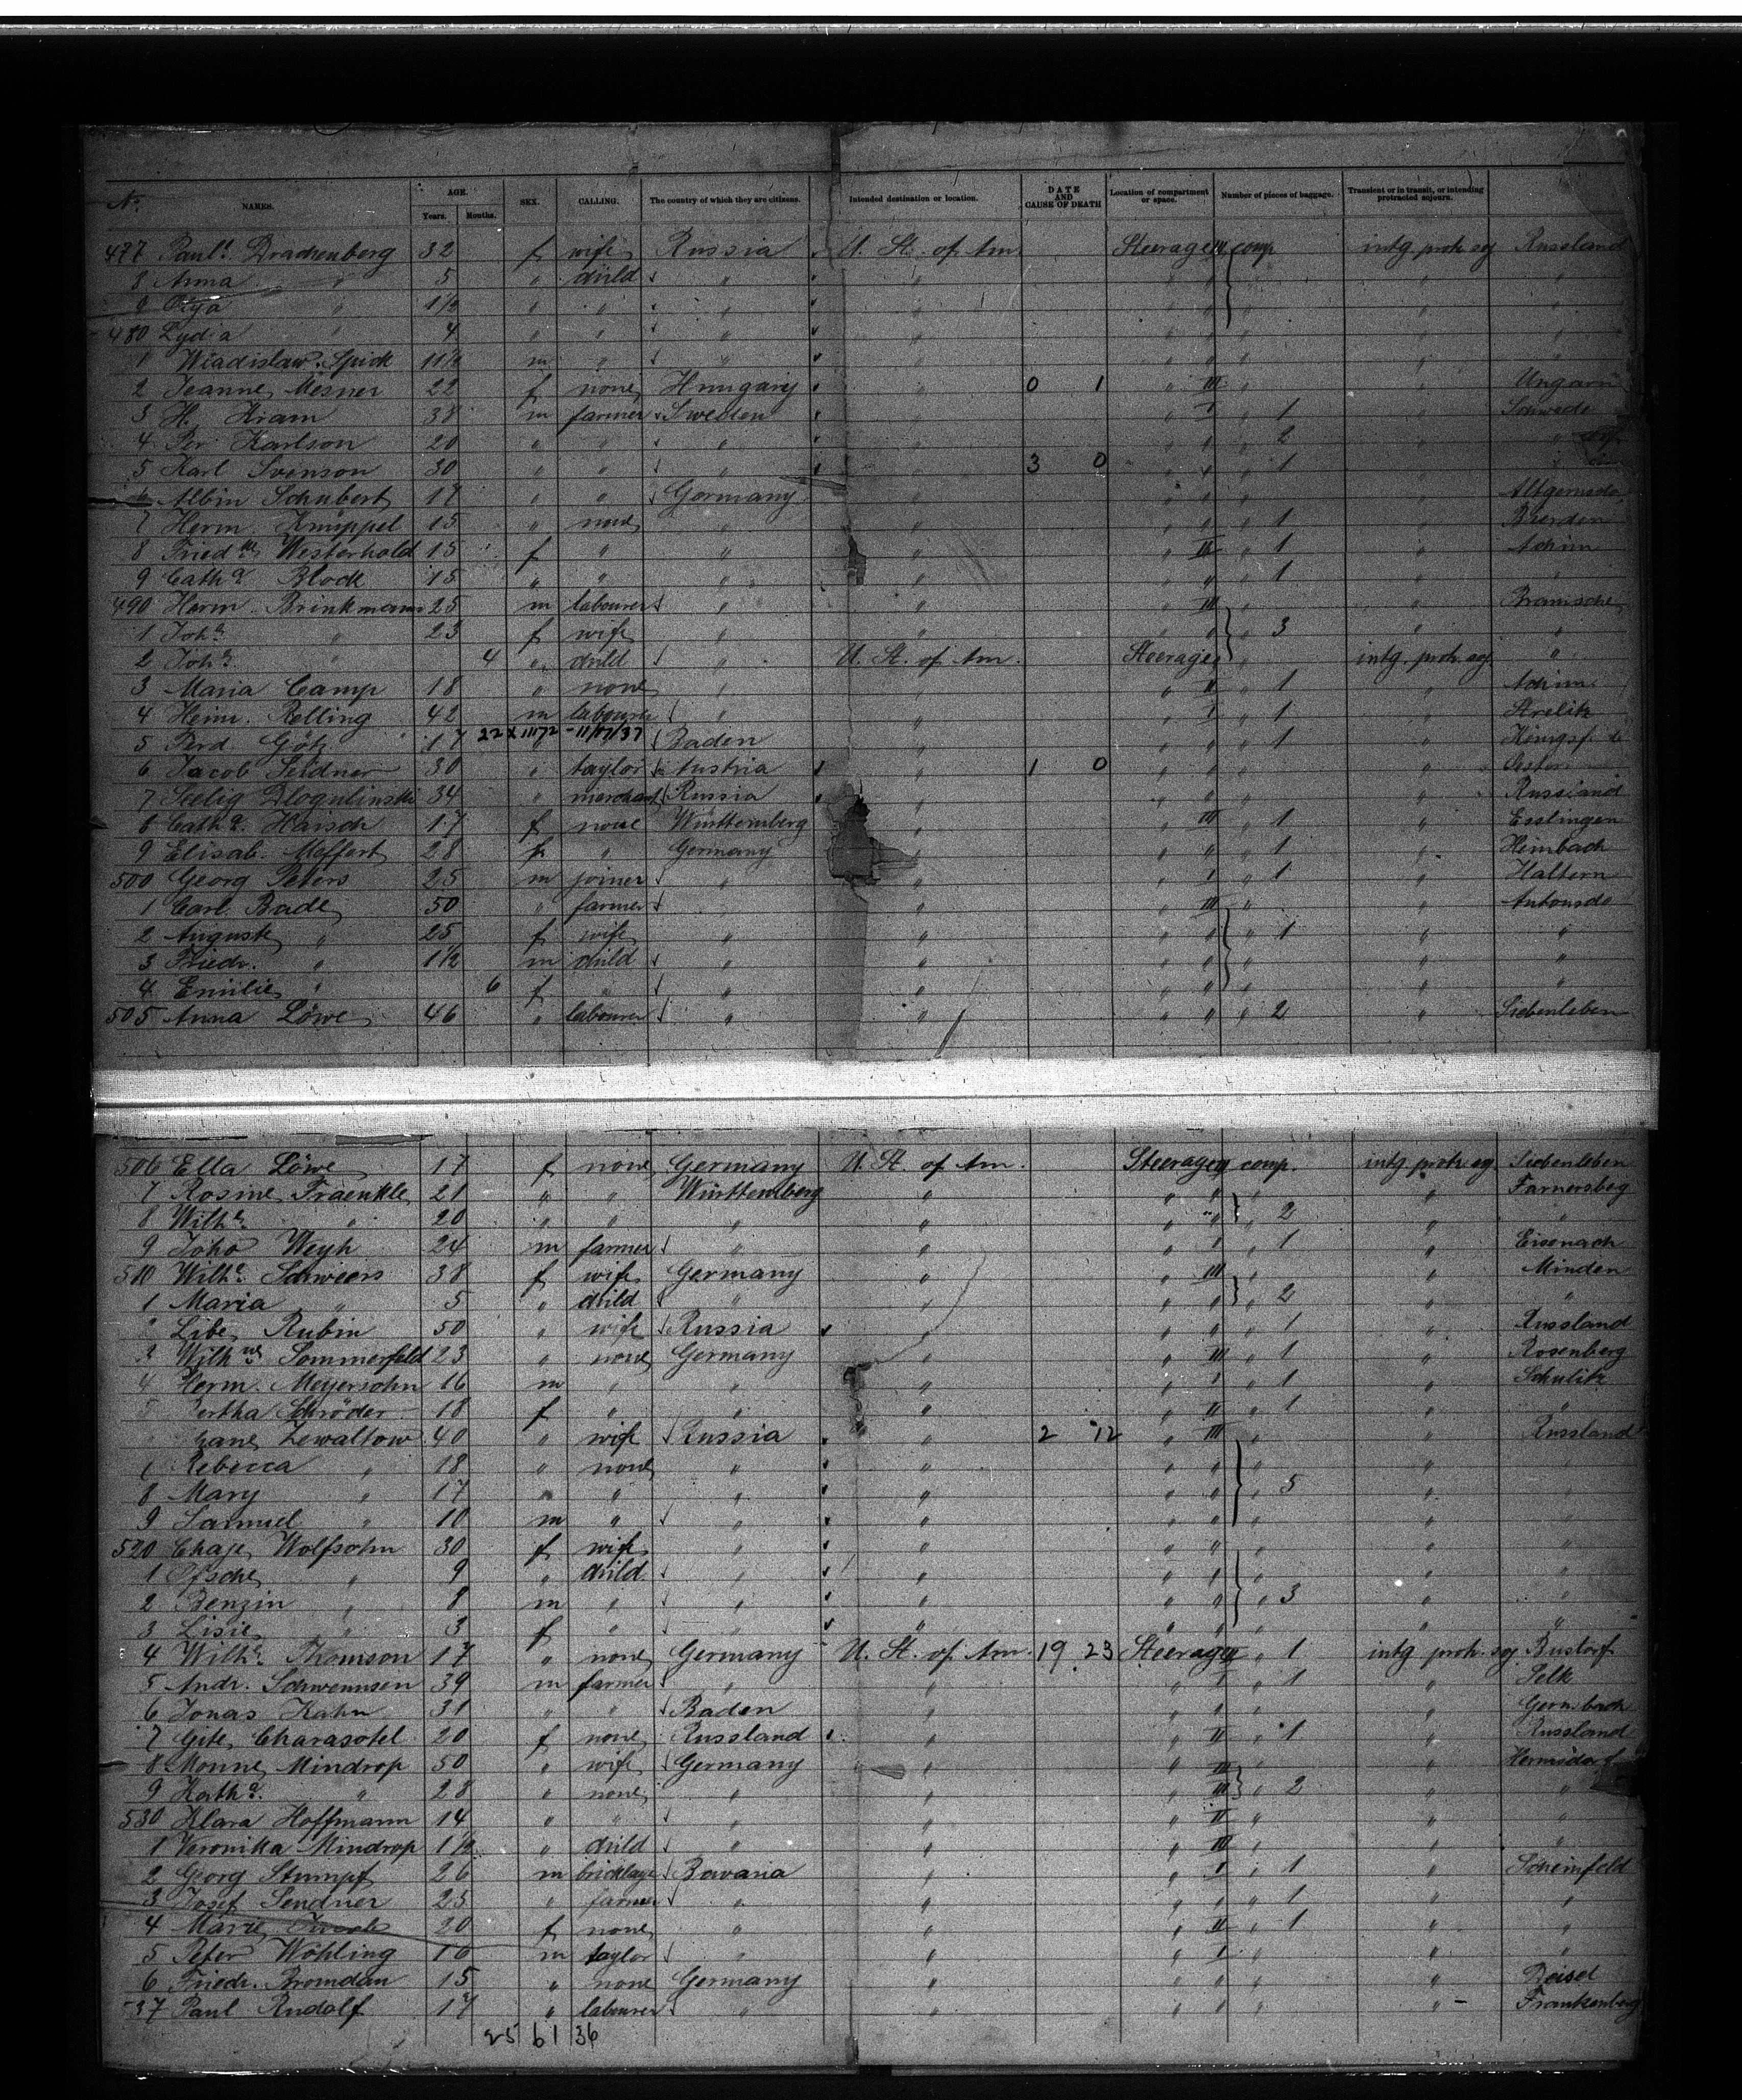 No. NAMES. AGE. Years. Months. SEX. CALLING. The country of which they are citizens. Intended destination or location. DATE AND CAUSE OF DEATH Location of compartment or space. Number of pieces of baggage. Transient or in transit, or intending protracted sojourn.
477 Paul.e Drachenberg 32 f wife Russia U. St. of Am. Steerage III comp. intg. protr. soj Russland
8 Anna " 5 " child " " " " " "
9 Olga " 1½ " " " " " " "
480 Lydia " 4 " " " " " " "
1 Wladislaw Spick 11½ m " " " " " "
2 Jeanne Mesner 22 f none Hungary " 0 1 " III " " Ungarn
3 H. Kram 38 m farmer Sweden " " I " 1 " Schwede
4 Per Karlson 20 " " " " " " " 2 " "
5 Karl Svenson 30 " " " " 3 0 " " " 1 " "
6 Albin Schubert 17 " " Germany " " " " "
7 Herm. Knüppel 15 " none " " " " " 1 "
8 Friedke Westerhold 15 f " " " " II " 1 " Achim
9 Cath.a Block 15 " " " " " " " 1 " "
490 Herm. Brinkmann 25 m labourer " " " III " " Bramsche
1 Joh.a " 23 f wife " " " " " 3 " "
2 Joh.a " 4 " child " U. St. of Am. Steerage " " intg. protr. soj. "
3 Maria Camp 18 " none " " " II " 1 " Achim
4 Heinr. Relling 42 m labourer " " " I " 1 " Strelitz
5 Ferd Götz 17 22 X 11172 - 11/17/37 " Baden " " " " 1 "
6 Jacob Seidner 30 " taylor Austria " 1 0 " " " "
7 Seelig Dlogulinski 34 " merchant Russia " " " " " Russland
8 Cath.a Haisch 17 f none Württemberg " " III " 1 " Esslingen
9 Elisab. Meffert 28 f " Germany " " " " 1 " Heimbach
500 Georg Peters 25 m joiner " " " I " 1 " Haltern
1 Carl Bade 50 " farmer " " " III " "
2 Auguste " 25 f wife " " " " " 1 " "
3 Friedr. " 1½ m child " " " " " " "
4 Emilie " 6 f " " " " " " " "
505 Anna Löwe 46 " labourer " " " " " 2 " Siebenleben
506 Ella Löwe 17 f none Germany U. St. of Am. Steerage II comp. intg. protr. soj. Siebenleben
7 Rosine Fraenkle 21 " " Württemberg " " " " Farnersbeg
8 Wilh.e " 20 " " " " " " " 2 " "
9 Joho Weyh 24 m farmer " " " I " 1 " Eisenach
510 Wilh.e Schweers 38 f wife Germany " " III " " Minden
1 Maria " 5 " child " " " " " 2 " "
Libe Rubin 50 " wife Russia " " " " 1 " Russland
3 Wilhne Sommerfeld 23 " none Germany " " III " 1 " Rosenberg
4 Herm. Meyersohn 16 m " " " " I " 1 " Schulitz
5 Bertha Schröder 18 f " " " " II " 1 " "
Zewaltow 40 " wife Russia " 2 12 " III " " Russland
Rebecca " 18 " none " " " " " " "
8 Mary " 17 " " " " " " " 5 " "
9 Samuel " 10 m " " " " " " " "
520 Chaje Wolfsohn 30 f wife " " " " " " "
1 " 9 " child " " " " " " "
2 Benzin " 8 m " " " " " " 3 " "
3 Lisie " 3 f " " " " " " "
4 Wilh.e Thomson 17 " none Germany U. St. of Am. 19 23 Steerage II " 1 intg protr. soj Bustorf
5 Andr. Schwennsen 39 m farmer " " " I " 1 " Selk
6 Jonas Kahn 31 " " Baden " " " " " Gernsbach
7 Gite Charasotel 20 f none Russland " " II " 1 " Russland
8 Monne Mindrop 50 " wife Germany " " III " " Hermsdorf
9 Kath.a " 28 " none " " " III " 2 " "
530 Klara Hoffmann 14 " " " " " II " " "
1 Veronika Mindrop 1½ " child " " " III " " "
2 Georg Stumpf 26 m bricklayer Bavaria " " I " 1 " Scheinfeld
3 Josef Sendner 25 " farmer " " " " " 1 " "
4 Marie 20 f none " " " II " 1 " "
5 Peter Wöhling 16 m taylor " " " I " " "
6 Friedr. Bromdan 15 " none Germany " " " " "
537 Paul Rudolf 17 " labourer " " " " " " Frankenberg
25 61 36